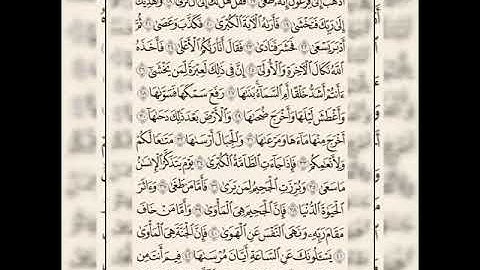 ٱذْهَبْ إِلَىٰ فِرْعَوْنَ إِنَّهُۥ طَغَىٰ ١٧ فَقُلْ هَل لَّكَ إِلَىٰٓ أَن تَزَكَّىٰ ١٨ وَأَهْدِيَكَ
إِلَىٰ رَبِّكَ فَتَخْشَىٰ ١٩ فَأَرَىٰهُ ٱلْءَايَةَ ٱلْكُبْرَىٰ ٢٠ فَكَذَّبَ وَعَصَىٰ ٢١ ثُمَّ
أَدْبَرَ يَسْعَىٰ ٢٢ فَحَشَرَ فَنَادَىٰ ٢٣ فَقَالَ أَنَا۠ رَبُّكُمُ ٱلْأَعْلَىٰ ٢٤ فَأَخَذَهُ
ٱللَّهُ نَكَالَ ٱلْءَاخِرَةِ وَٱلْأُولَىٰٓ ٢٥ إِنَّ فِى ذَٰلِكَ لَعِبْرَةً لِّمَن يَخْشَىٰٓ ٢٦
ءَأَنتُمْ أَشَدُّ خَلْقًا أَمِ ٱلسَّمَآءُ بَنَىٰهَا ٢٧ رَفَعَ سَمْكَهَا فَسَوَّىٰهَا ٢٨
وَأَغْطَشَ لَيْلَهَا وَأَخْرَجَ ضُحَىٰهَا ٢٩ وَٱلْأَرْضَ بَعْدَ ذَٰلِكَ دَحَىٰهَآ ٣٠
أَخْرَجَ مِنْهَا مَآءَهَا وَمَرْعَىٰهَا ٣١ وَٱلْجِبَالَ أَرْسَىٰهَا ٣٢ مَتَٰعًا لَّكُمْ
وَلِأَنْعَٰمِكُمْ ٣٣ فَإِذَا جَآءَتِ ٱلطَّآمَّةُ ٱلْكُبْرَىٰ ٣٤ يَوْمَ يَتَذَكَّرُ ٱلْإِنسَٰنُ
مَا سَعَىٰ ٣٥ وَبُرِّزَتِ ٱلْجَحِيمُ لِمَن يَرَىٰ ٣٦ فَأَمَّا مَن طَغَىٰ ٣٧ وَءَاثَرَ
ٱلْحَيَوٰةَ ٱلدُّنْيَا ٣٨ فَإِنَّ ٱلْجَحِيمَ هِىَ ٱلْمَأْوَىٰ ٣٩ وَأَمَّا مَنْ خَافَ
مَقَامَ رَبِّهِۦ وَنَهَى ٱلنَّفْسَ عَنِ ٱلْهَوَىٰ ٤٠ فَإِنَّ ٱلْجَنَّةَ هِىَ ٱلْمَأْوَىٰ
٤١ يَسْـَٔلُونَكَ عَنِ ٱلسَّاعَةِ أَيَّانَ مُرْسَىٰهَا ٤٢ فِيمَ أَنتَ مِن